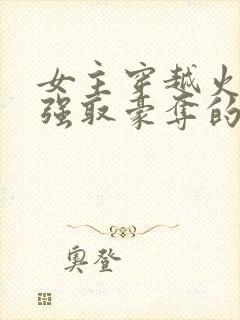 女主穿越火
强取豪夺的
奥登